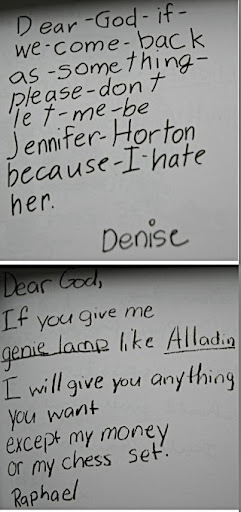 Dear-God-if-
we-come-back
as-something-
please-don't
let-me-be
Jennifer-Horton
because-I-hate
her.
Denise
Dear God,
If you give me
genie lamp like Alladin
I will give you anything
you want
except my money
or my chess set.
Raphael